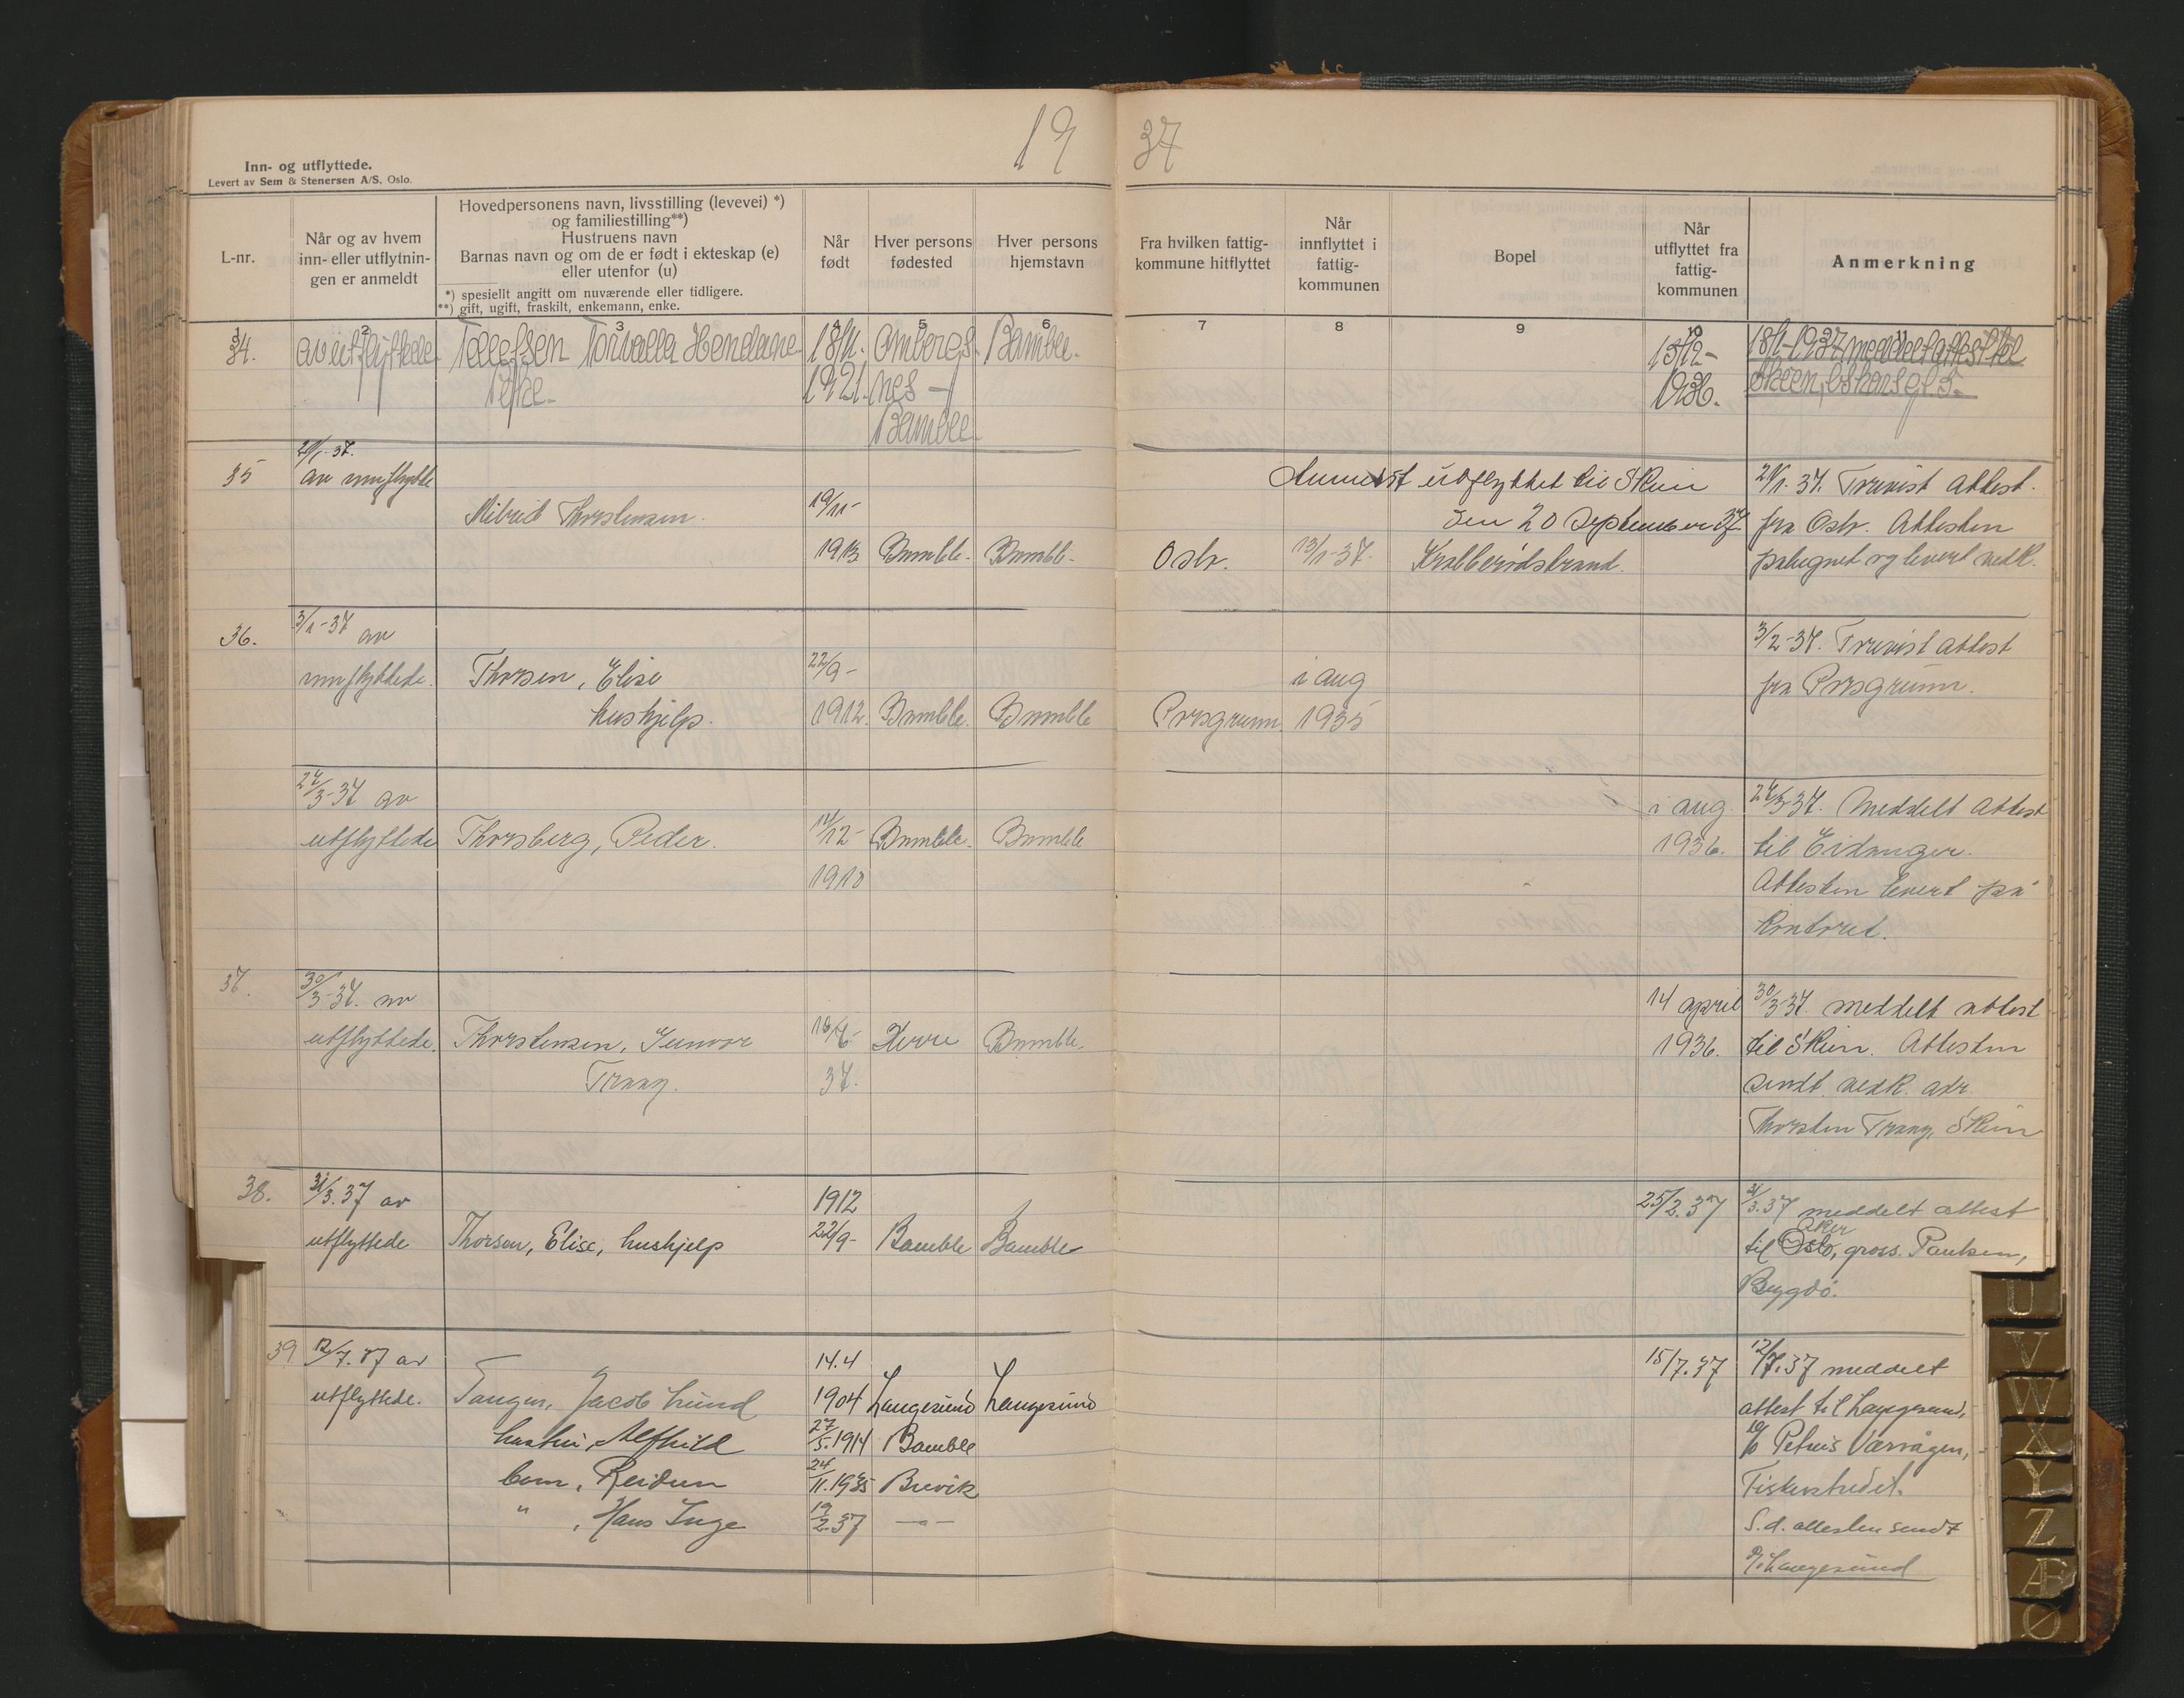 19 37
Inn- og utflyttede.
Levert av Sem & Stenersen A/S, Oslo.
L-nr.
Når og av hvem
inn- eller utflytnin-
gen er anmeldt
Hovedpersonens navn, livsstilling (levevei) *)
og familiestilling**)
Hustruens navn
Barnas navn og om de er født i ekteskap (e)
eller utenfor (u)
*) spesiellt angitt om nuværende eller tidligere.
**) gift, ugift, fraskilt, enkemann, enke.
Når
født
Hver persons
fødested
Hver persons
hjemstavn
Fra hvilken fattig-
kommune hitflyttet
Når
innflyttet i
fattig-
kommunen
Bopel
Når
utflyttet fra
fattig-
kommunen
Anmerkning
1 2 3 4 5 6 7 8 9 10 11
34. av utflyttede Tollefsen Torvalla
18/11. Bamble. 15/12- 18/1-1937 meddelt attest til
1921. nes - 1936. Skien,
Bamble
35 av innflyttede
Anmeldt utflyttet til Skien
den 20 september 37.
Thorstensen. 19/11-
1913 Bamble. Bamble. Oslo. 13/1-37.
21/1. 37. Innvist attest.
fra Oslo. Attesten
påtegnet og levert vedk.
36. 3/1-37 av
innflyttede. Thorsen, Elise
hushjelp.
22/9-
1912. Bamble. Bamble Porsgrunn i aug
1935
3/2-37. Innvist attest
fra Porsgrunn.
24/3-37 av
utflyttede Thorsberg, Peder. 14/12- Bamble. Bamble
1910
i aug.
1936.
24/3-37. Meddelt attest
til Eidanger.
Attesten levert på
kontoret.
37. 30/3-37. av
utflyttede. Thorstensen, Gunvor
Trany.
Herre Bamble.
37.
14 april
1936.
30/3-37. meddelt attest
til Skien. Attesten
sendt vedk. adr.
Thorsten Trany, Skien
38. 31/3.37 av
utflyttede Thorsen, Elise, hushjelp
1912
22/9- Bamble Bamble
25/2.37
31/3.37 meddelt attest
Aker
til Oslo, gross. Paulsen,
Bygdö.
39 12/7.37 av
utflyttede. Tangen, Jacob Lund
14.4
1904 Langesund Langesund
hustru, Alfhild 27/5.1914 Bamble
barn, Reidun 24/11.1935 Brevik
" , Hans Inge 19/2.37 —"—
15/7.37
12/7.37 meddelt
attest til Langesund,
Petrus Værvågen,
Fiskerstredet.
S.d. attesten sendt
Langesund
U
V
W
X
Y
Z
Æ
Ø